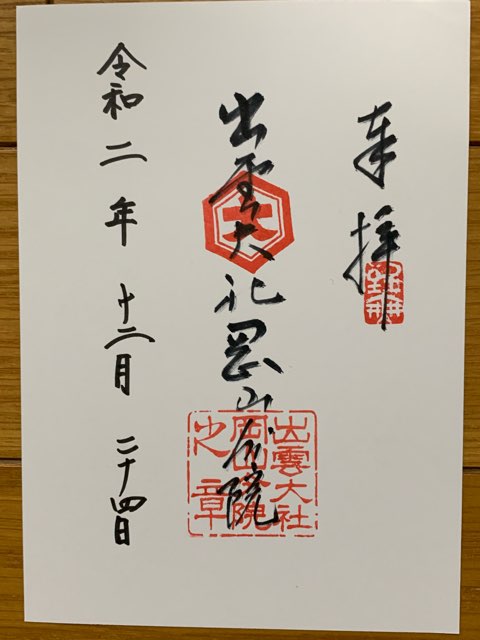 奉拝
出雲大社岡山分院
令和二年 十二月 二十四日
大
出雲大社
岡山分院
之章